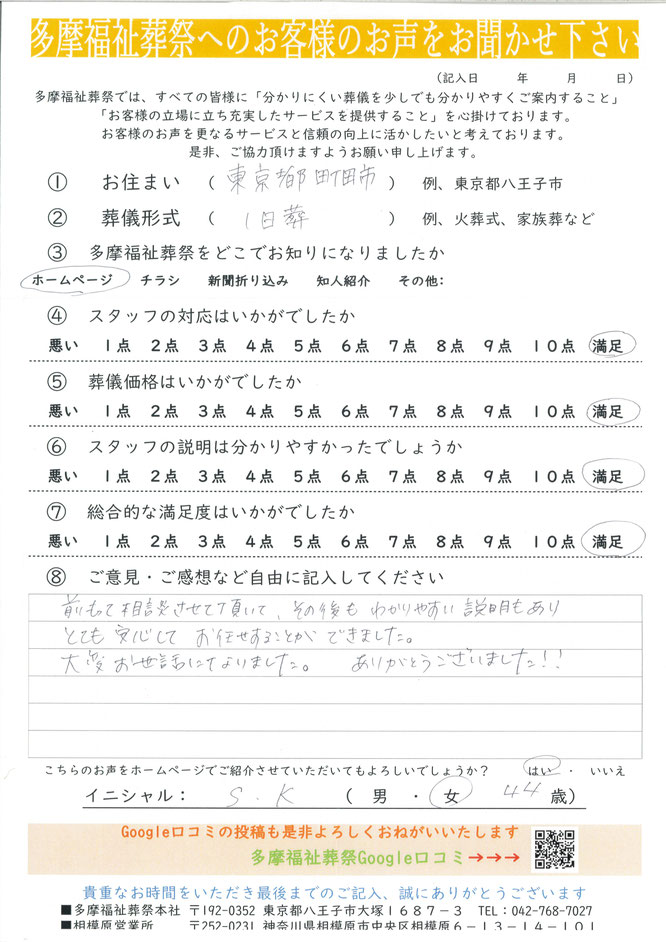 多摩福祉葬祭へのお客様のお声をお聞かせ下さい
(記入日 年 月 日)
多摩福祉葬祭では、すべての皆様に「分かりにくい葬儀を少しでも分かりやすくご案内すること」
「お客様の立場に立ち充実したサービスを提供すること」を心掛けております。
お客様のお声を更なるサービスと信頼の向上に活かしたいと考えております。
是非、ご協力頂けますようお願い申し上げます。
① お住まい (東京都町田市) 例、東京都八王子市
② 葬儀形式 (1日葬) 例、火葬式、家族葬など
③ 多摩福祉葬祭をどこでお知りになりましたか
ホームページ チラシ 新聞折り込み 知人紹介 その他:
④ スタッフの対応はいかがでしたか
悪い 1点 2点 3点 4点 5点 6点 7点 8点 9点 10点 満足
⑤ 葬儀価格はいかがでしたか
悪い 1点 2点 3点 4点 5点 6点 7点 8点 9点 10点 満足
⑥ スタッフの説明は分かりやすかったでしょうか
悪い 1点 2点 3点 4点 5点 6点 7点 8点 9点 10点 満足
⑦ 総合的な満足度はいかがでしたか
悪い 1点 2点 3点 4点 5点 6点 7点 8点 9点 10点 満足
⑧ ご意見・ご感想など自由に記入してください
前もって相談させて頂いて、その後も わかりやすい 説明もあり
とても 安心して お任せすることが できました。
大変 お世話になりました。 ありがとうございました!!
こちらのお声をホームページでご紹介させていただいてもよろしいでしょうか? はい ・ いいえ
イニシャル: S.K (男 ・ 女 44 歳)
Google口コミの投稿も是非よろしくおねがいいたします
多摩福祉葬祭Google口コミ→→→
貴重なお時間をいただき最後までのご記入、誠にありがとうございます
■多摩福祉葬祭本社 〒192-0352 東京都八王子市大塚1687-3 TEL:042-768-7027
■相模原営業所 〒252-0231 神奈川県相模原市中央区相模原6-13-14-101